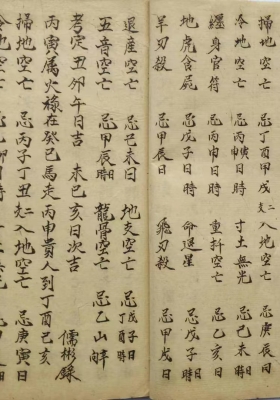 掃地空亡 忌丁酉甲戌 二入地空亡 忌庚辰日
冷地空亡 忌丙寅日時 寸土無光 忌己未日時
纏身官符 忌丙申日時 空亡 忌乙亥日
地虎食屍 忌戊子日時 命逆星 忌戊子日時
羊刃殺 忌甲辰日 飛刃殺 忌甲戌日
退産空亡 忌己未日 地支空亡 忌戊子日丁酉時
五音空亡 忌甲辰日時 龍骨空亡 忌乙山
考定丑卯午日吉 未巳亥日次吉
丙寅属火祿在癸巳馬走丙申貴人到丁酉己亥
儒彬錄
掃地空亡 忌丙子丁丑二入地空亡 忌庚寅日